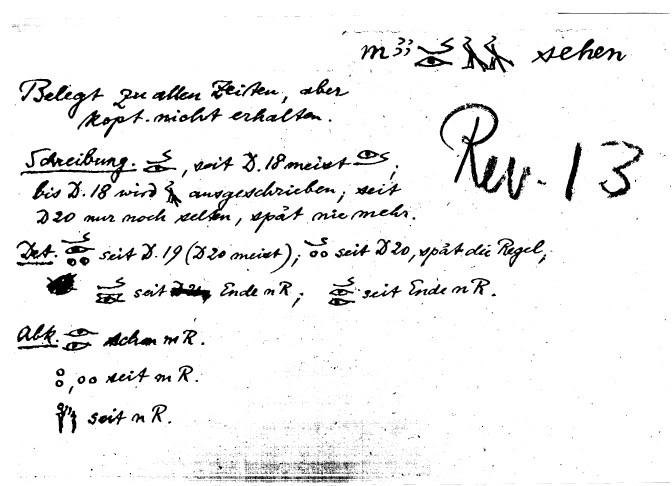 m33 𓌳𓁹𓄿𓄿 sehen
Belegt zu allen Zeiten, aber
kopt. nicht erhalten.
Rev. 13
Schreibung. 𓌳𓁹, seit D. 18 meist 𓁹𓌳;
bis D. 18 wird 𓄿 ausgeschrieben; seit
D20 nur noch selten, spät nie mehr.
Det. seit D. 19 (D20 meist); seit D20, spät die Regel;
seit Ende nR; seit Ende nR.
Abk. 𓁹𓁹 schon mR.
seit mR.
seit nR.